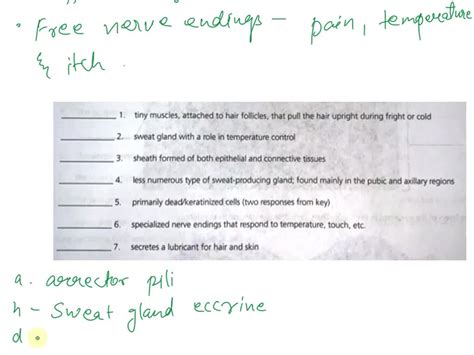 • Free nerve endings - pain, temperature
& itch.
1. tiny muscles, attached to hair follicles, that pull the hair upright during fright or cold
2. sweat gland with a role in temperature control
3. sheath formed of both epithelial and connective tissues
4. less numerous type of sweat-producing gland; found mainly in the pubic and axillary regions
5. primarily dead/keratinized cells (two responses from key)
6. specialized nerve endings that respond to temperature, touch, etc.
7. secretes a lubricant for hair and skin
a. arrector pili
h - Sweat gland eccrine
d